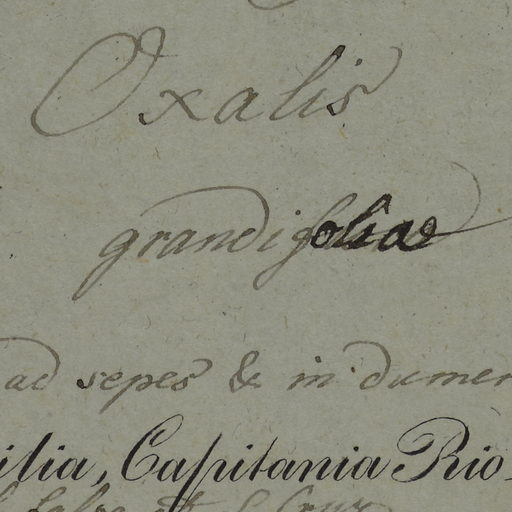 Oxalis
grandifolia
ad sepes & in dumen
ilia, Capitania Rio